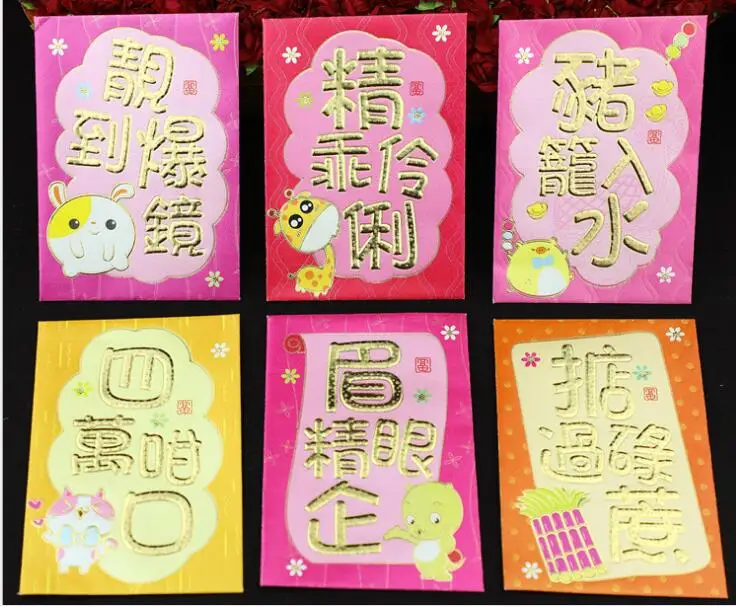 靚到爆鏡
精乖伶俐
豬籠入水
四萬咁口
眉精眼企
掂過碌蔗